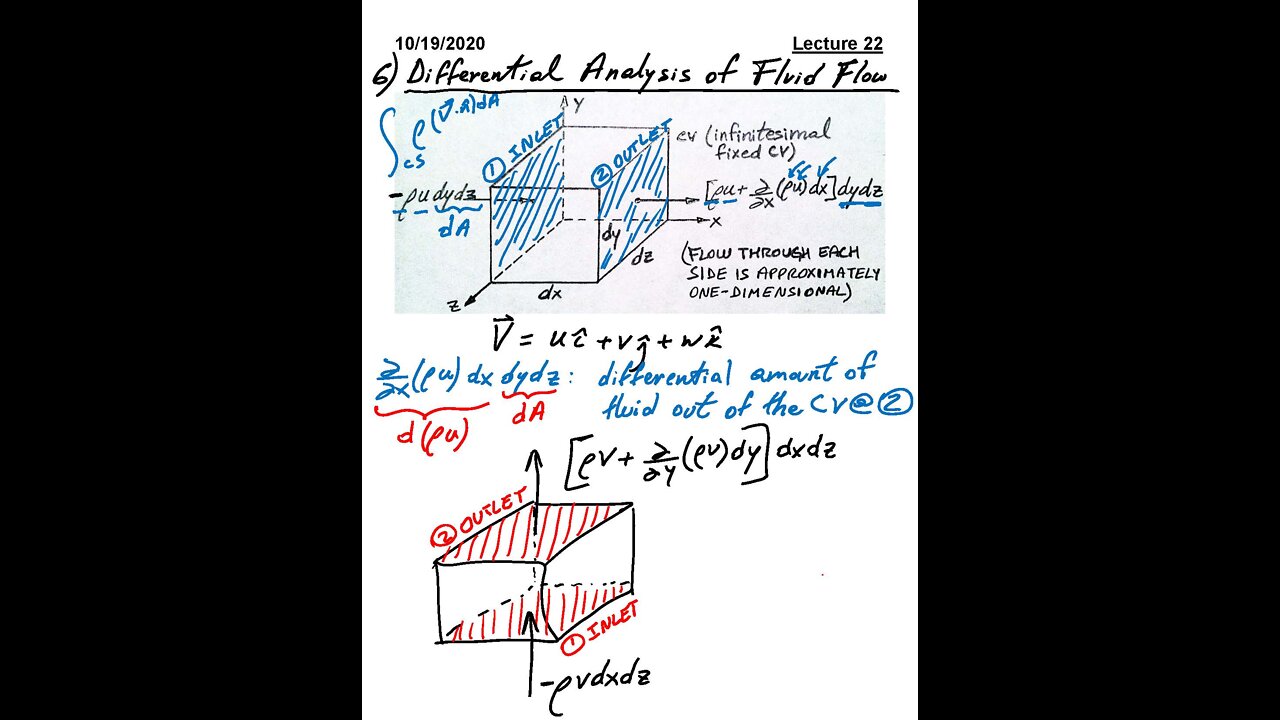 10/19/2020 Lecture 22
6) Differential Analysis of Fluid Flow
∫cs ρ(V⃗·n̂)dA
y
① INLET
② OUTLET
CV (infinitesimal
fixed CV)
-ρu dydz
dA
[ρu+∂/∂x(ρu)dx]dydz
x
dy
dz
(FLOW THROUGH EACH
SIDE IS APPROXIMATELY
ONE-DIMENSIONAL)
z
dx
V⃗ = uî+vĵ+wk̂
∂/∂x(ρu)dx dydz: differential amount of
fluid out of the CV@②
d(ρu)
dA
[ρv+∂/∂y(ρv)dy]dxdz
② OUTLET
① INLET
-ρvdxdz